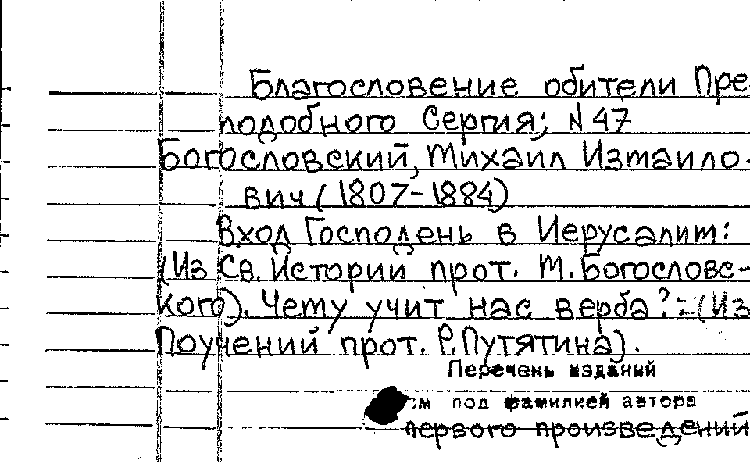 Благословение обители Пре-
подобного Сергия; N 47
Богословский, Михаил Измаило-
вич (1807-1884)
Вход Господень в Иерусалим:
(Из Св. Истории прот. М. Богословс-
кого). Чему учит нас верба?:(Из
Поучений прот. Р. Путятина).
Перечень изданий
см под фамилией автора
первого произведений